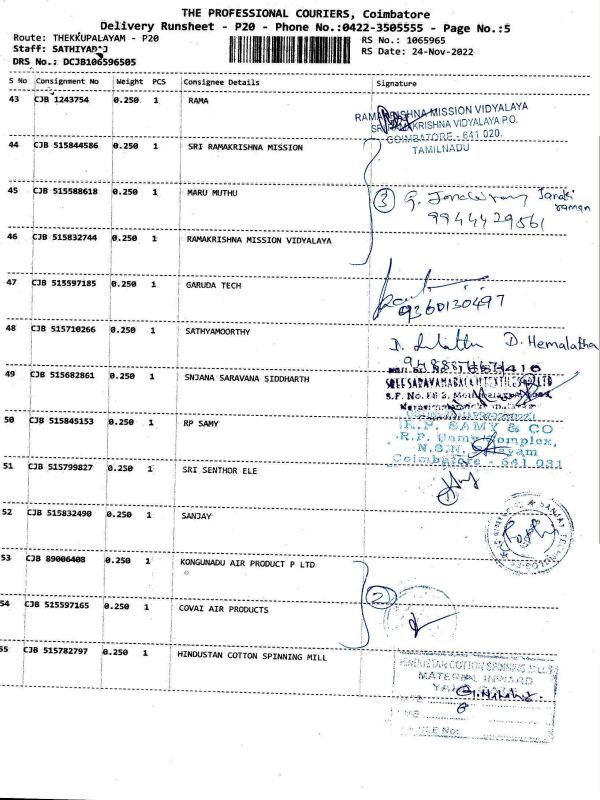 THE PROFESSIONAL COURIERS, Coimbatore
Delivery Runsheet - P20 - Phone No.:0422-3505555 - Page No.:5
Route: THEKKUPALAYAM - P20
RS No.: 1065965
Staff: SATHIYARAJ
RS Date: 24-Nov-2022
DRS No.: DCJB106596505
S No Consignment No Weight PCS Consignee Details Signature
43 CJB 1243754 0.250 1 RAMA
RAMAKRISHNA MISSION VIDYALAYA
SRI RAMAKRISHNA VIDYALAYA P.O.
COIMBATORE - 641 020.
TAMILNADU
44 CJB 515844586 0.250 1 SRI RAMAKRISHNA MISSION
45 CJB 515588618 0.250 1 MARU MUTHU
3 G. Janaki raman
9944429561
46 CJB 515832744 0.250 1 RAMAKRISHNA MISSION VIDYALAYA
47 CJB 515597185 0.250 1 GARUDA TECH
9360130497
48 CJB 515710266 0.250 1 SATHYAMOORTHY
D. Hemalatha
49 CJB 515682861 0.250 1 SNJANA SARAVANA SIDDHARTH
50 CJB 515845153 0.250 1 RP SAMY
R.P. SAMY & CO
R.P. Samy Complex,
Coimbatore - 641 031
51 CJB 515799827 0.250 1 SRI SENTHOR ELE
52 CJB 515832490 0.250 1 SANJAY
53 CJB 89006408 0.250 1 KONGUNADU AIR PRODUCT P LTD
2
54 CJB 525597165 0.250 1 COVAI AIR PRODUCTS
55 CJB 515782797 0.250 1 HINDUSTAN COTTON SPINNING MILL
HINDUSTAN COTTON SPINNING MILLS
MATERIAL INWARD